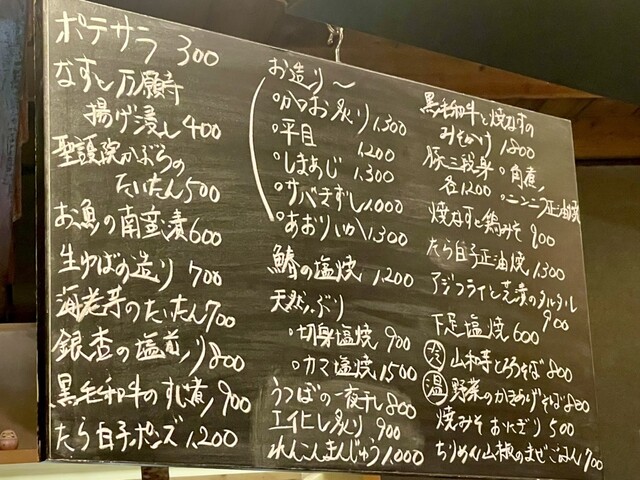 ポテサラ 300
なすと万願寺
揚げ浸し 400
聖護院かぶらの
たいたん 500
お魚の南蛮漬 600
生ゆばの造り 700
海老芋のたいたん 700
銀杏の塩煎り 800
黒毛和牛のすじ煮 900
たら白子ポンズ 1,200
お造り〜
・かつお炙り 1,300
・平目 1,200
・しまあじ 1,300
・サバきずし 1,000
・あおりいか 1,300
鰆の塩焼 1,200
天然ぶり
・切身塩焼 900
・カマ塩焼 1500
うつぼの一夜干し 800
エイヒレ炙り 900
れんこんまんじゅう 1,000
黒毛和牛と焼なすの
みそかけ 1,800
豚三段身 ・角煮
各1200 ・ニンニク正油焼
焼なすと鶏みそ 900
たら白子正油焼 1,300
アジフライと芝漬のタルタル
900
下足塩焼 600
山和寺とろそば 800
温 野菜のかきあげそば 800
焼みそおにぎり 500
ちりめん山椒のまぜごはん 700